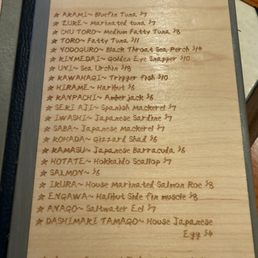 ★ AKAMI~ Bluefin Tuna $7
★ ZUKE~ Marinated tuna $7
★ CHU TORO~ Medium Fatty Tuna $8
★ TORO~ Fatty Tuna $11
★ YODOGURO~ Black Throat Sea Perch $10
★ KINMEDAI~ Golden Eye Snapper $10
★ UNI~ Sea Urchin $8
★ KAWAHAGI~ Trigger fish $10
★ HIRAME~ Halibut $6
★ KANPACHI~ Amberjack $6
★ SEKI AJI~ Spanish Mackerel $7
★ IWASHI~ Japanese Sardine $7
★ SABA~ Japanese Mackerel $7
★ KOHADA~ Gizzard Shad $6
★ KAMASU~ Japanese Barracuda $6
★ HOTATE~ Hokkaido Scallop $7
★ SALMON~ $6
★ IKURA~ House Marinated Salmon Roe $8
★ ENGAWA~ Halibut Side fin muscle $8
★ ANAGO~ Saltwater Eel $7
★ DASHIMAKI TAMAGO~ House Japanese
Egg $4